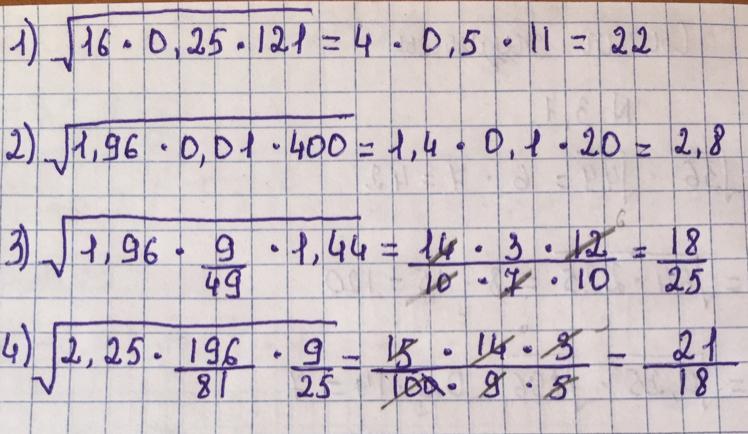 1) √16 · 0,25 · 121 = 4 · 0,5 · 11 = 22
2) √1,96 · 0,01 · 400 = 1,4 · 0,1 · 20 = 2,8
3) √1,96 · 9/49 · 1,44 = 14 · 3 · 12 6 / 10 · 7 · 10 = 18/25
4) √2,25 · 196/81 · 9/25 = 15 · 14 · 3 / 100 · 9 · 5 = 21/18